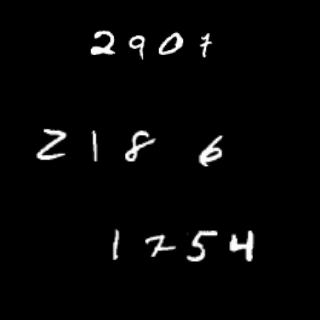 2907
218 6
1754